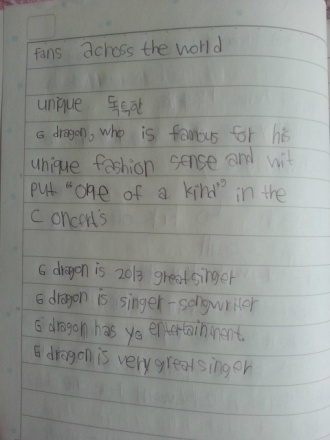 fans across the world
unique 독특한
G dragon, who is famous for his
unique fashion sense and wit
put "one of a kind" in the
Concerts
G dragon is 2013 great singer
G dragon is singer-songwriter
G dragon has yg entertainment.
G dragon is very great singer